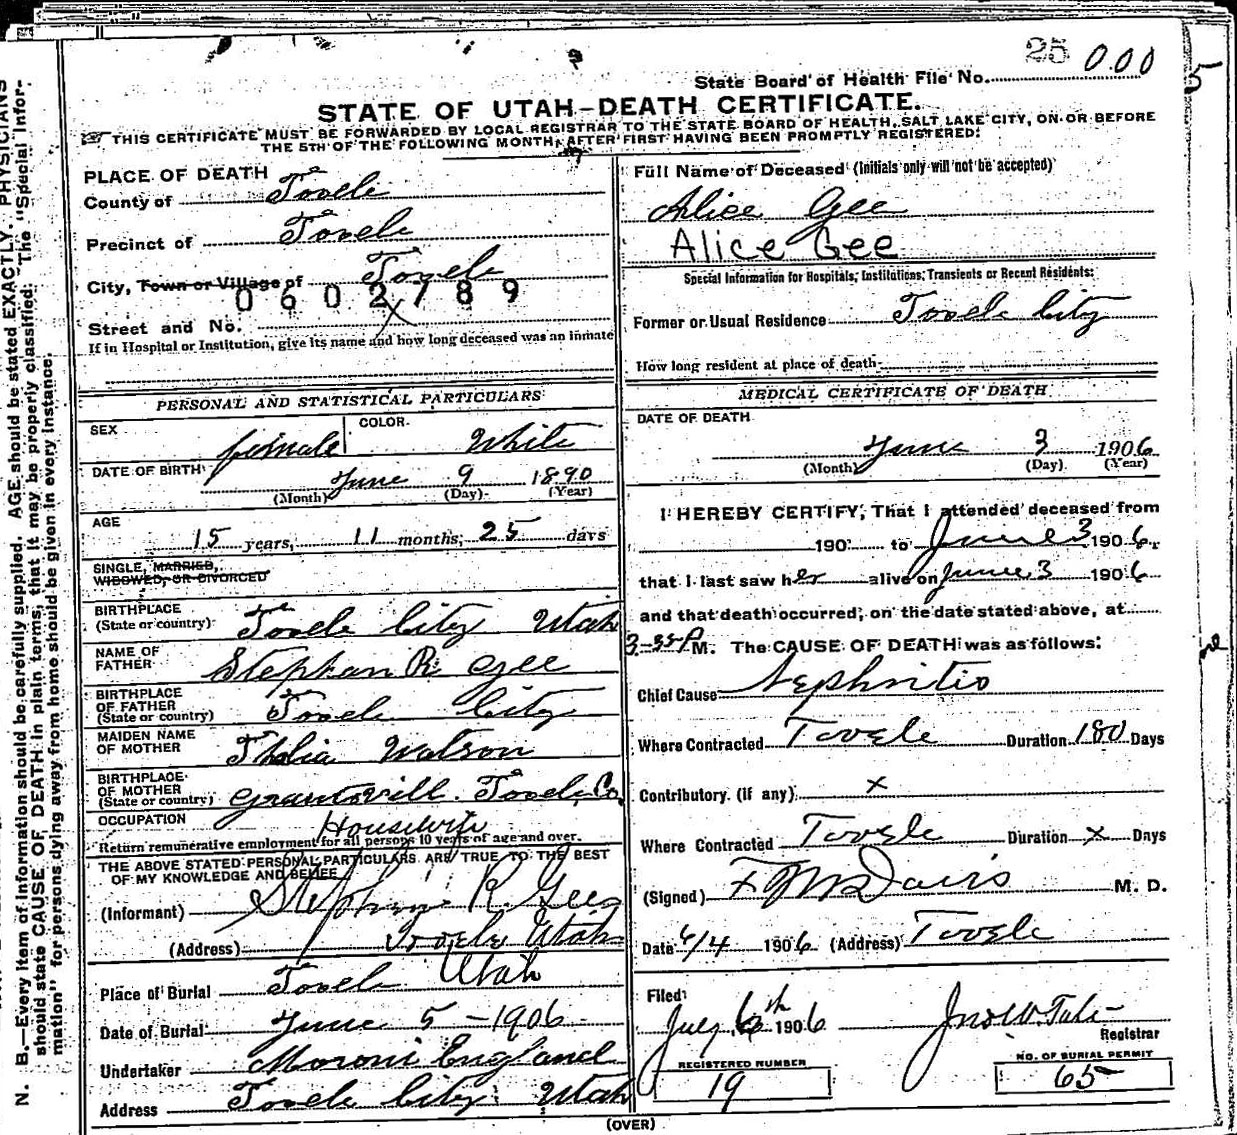 25 000
State Board of Health File No.
STATE OF UTAH—DEATH CERTIFICATE.
THIS CERTIFICATE MUST BE FORWARDED BY LOCAL REGISTRAR TO THE STATE BOARD OF HEALTH, SALT LAKE CITY, ON OR BEFORE
THE 5TH OF THE FOLLOWING MONTH, AFTER FIRST HAVING BEEN PROMPTLY REGISTERED.
PLACE OF DEATH
County of Tooele
Precinct of Tooele
City, Town or Village of Tooele
0602789
Street and No. X
If in Hospital or Institution, give its name and how long deceased was an inmate
PERSONAL AND STATISTICAL PARTICULARS
SEX female COLOR White
DATE OF BIRTH June 9 1890
(Month) (Day) (Year)
AGE
15 years, 11 months, 25 days
SINGLE, MARRIED,
WIDOWED, OR DIVORCED
BIRTHPLACE
(State or country) Tooele City Utah
NAME OF
FATHER Stephan R. Gee
BIRTHPLACE
OF FATHER
(State or country) Tooele City
MAIDEN NAME
OF MOTHER Watson
BIRTHPLACE
OF MOTHER
(State or country) Grantsvill. Tooele Co.
OCCUPATION Housewife
Return remunerative employment for all persons 10 years of age and over.
THE ABOVE STATED PERSONAL PARTICULARS ARE TRUE TO THE BEST
OF MY KNOWLEDGE AND BELIEF
(Informant) Stephen R. Gee
(Address) Tooele Utah
Place of Burial Tooele Utah
Date of Burial June 5 - 1906
Undertaker Moroni England
Address Tooele City Utah
Full Name of Deceased (Initials only will not be accepted)
Alice Gee
Alice Gee
Special Information for Hospitals, Institutions, Transients or Recent Residents:
Former or Usual Residence Tooele City
How long resident at place of death
MEDICAL CERTIFICATE OF DEATH
DATE OF DEATH
June 3 1906
(Month) (Day) (Year)
I HEREBY CERTIFY, That I attended deceased from
190 to June 3 1906,
that I last saw her alive on June 3 1906
and that death occurred, on the date stated above, at
3-35 P M. The CAUSE OF DEATH was as follows:
Chief Cause Nephritis
Where Contracted Tooele Duration 180 Days
Contributory (if any) x
Where Contracted Tooele Duration x Days
(Signed) Davis M. D.
Date 6/4 1906 (Address) Tooele
Filed:
July 6th 1906
Registrar
REGISTERED NUMBER
19
NO. OF BURIAL PERMIT
65
(OVER)
N. B.—Every item of information should be carefully supplied. AGE should be stated EXACTLY. PHYSICIANS
should state CAUSE OF DEATH in plain terms, that it may be properly classified. The "Special Infor-
mation" for persons dying away from home should be given in every instance.